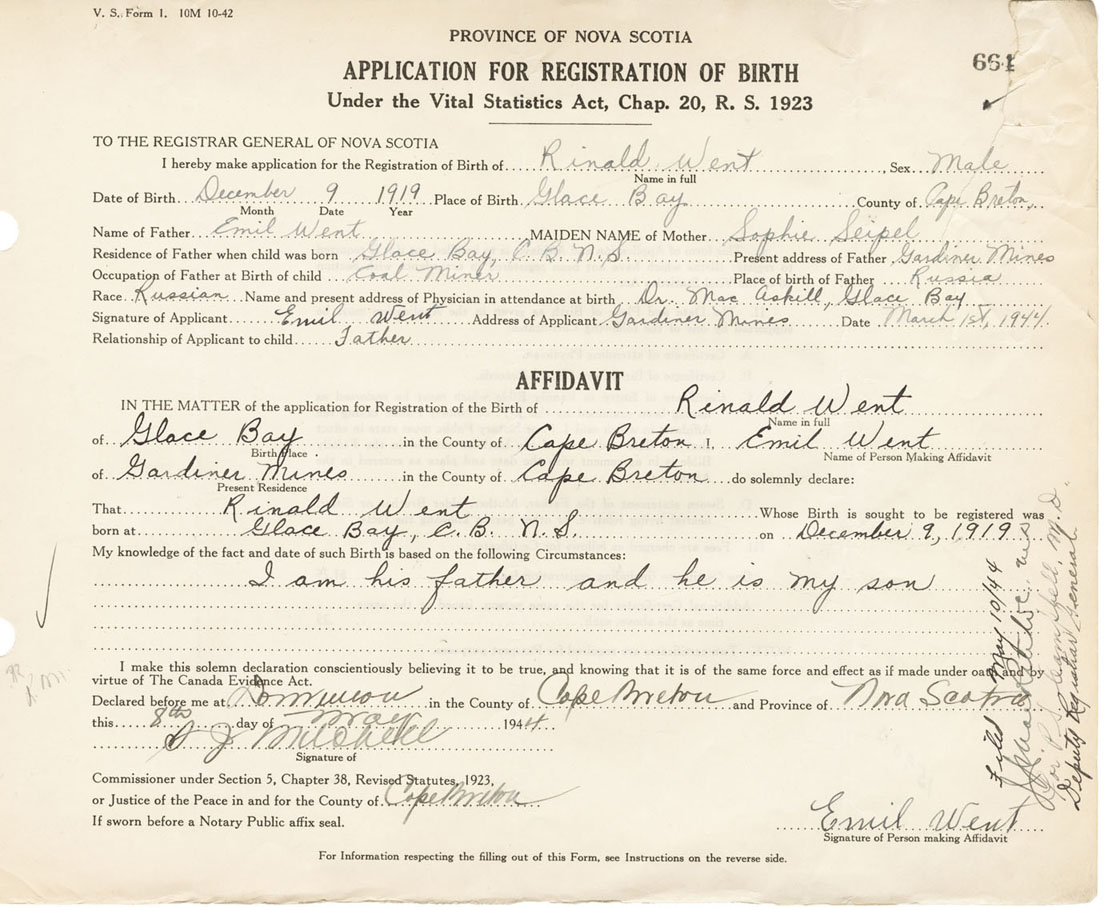 V. S. Form 1. 10M 10-42
PROVINCE OF NOVA SCOTIA
664
APPLICATION FOR REGISTRATION OF BIRTH
Under the Vital Statistics Act, Chap. 20, R. S. 1923
TO THE REGISTRAR GENERAL OF NOVA SCOTIA
I hereby make application for the Registration of Birth of Rinald Went, Sex Male
Name in full
Date of Birth December 9 1919 Place of Birth Glace Bay County of Cape Breton
Month Date Year
Name of Father Emil Went, MAIDEN NAME of Mother Sophie Seipel
Residence of Father when child was born Glace Bay, C. B. N. S. Present address of Father Gardiner Mines
Occupation of Father at Birth of child Coal Miner Place of birth of Father Russia
Race Russian Name and present address of Physician in attendance at birth Dr. Mac Askill, Glace Bay
Signature of Applicant Emil Went Address of Applicant Gardiner Mines Date March 1st, 1944.
Relationship of Applicant to child Father
AFFIDAVIT
IN THE MATTER of the application for Registration of the Birth of Rinald Went
Name in full
of Glace Bay in the County of Cape Breton I. Emil Went
Birth Place Name of Person Making Affidavit
of Gardiner Mines in the County of Cape Breton do solemnly declare:
Present Residence
That Rinald Went Whose Birth is sought to be registered was
born at Glace Bay, C. B. N. S. on December 9, 1919
My knowledge of the fact and date of such Birth is based on the following Circumstances:
I am his father and he is my son
I make this solemn declaration conscientiously believing it to be true, and knowing that it is of the same force and effect as if made under oath and by
virtue of The Canada Evidence Act.
Declared before me at Dominion in the County of Cape Breton and Province of Nova Scotia
this 8th day of May 1944
J Mitchell
Signature of
Commissioner under Section 5, Chapter 38, Revised Statutes, 1923,
or Justice of the Peace in and for the County of Cape Breton
If sworn before a Notary Public affix seal.
Emil Went
Signature of Person making Affidavit
For Information respecting the filling out of this Form, see Instructions on the reverse side.
Filed May 10/44
For P. S. Campbell, M. D.
Deputy Registrar General